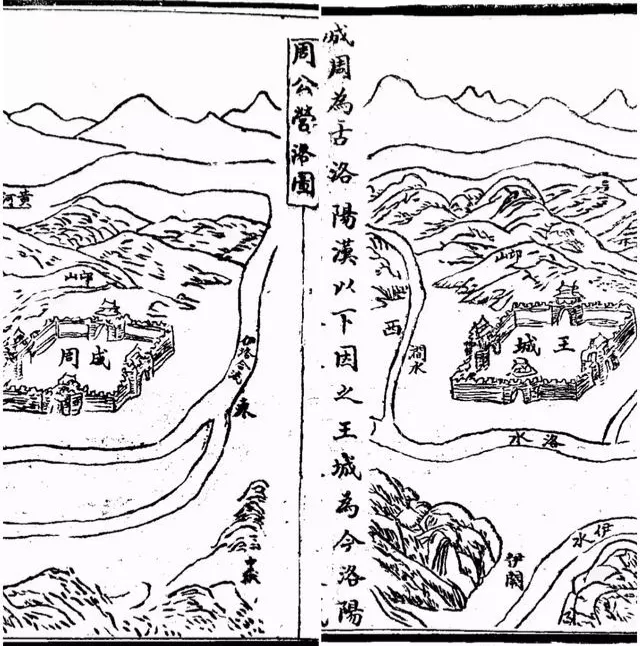 周公營洛圖
成周為古洛陽漢以下因之王城為今洛陽
邙山
王城
西
澗水
洛水
伊水
伊闕
黃河
邙山
成周
伊洛合流
東
中嶽